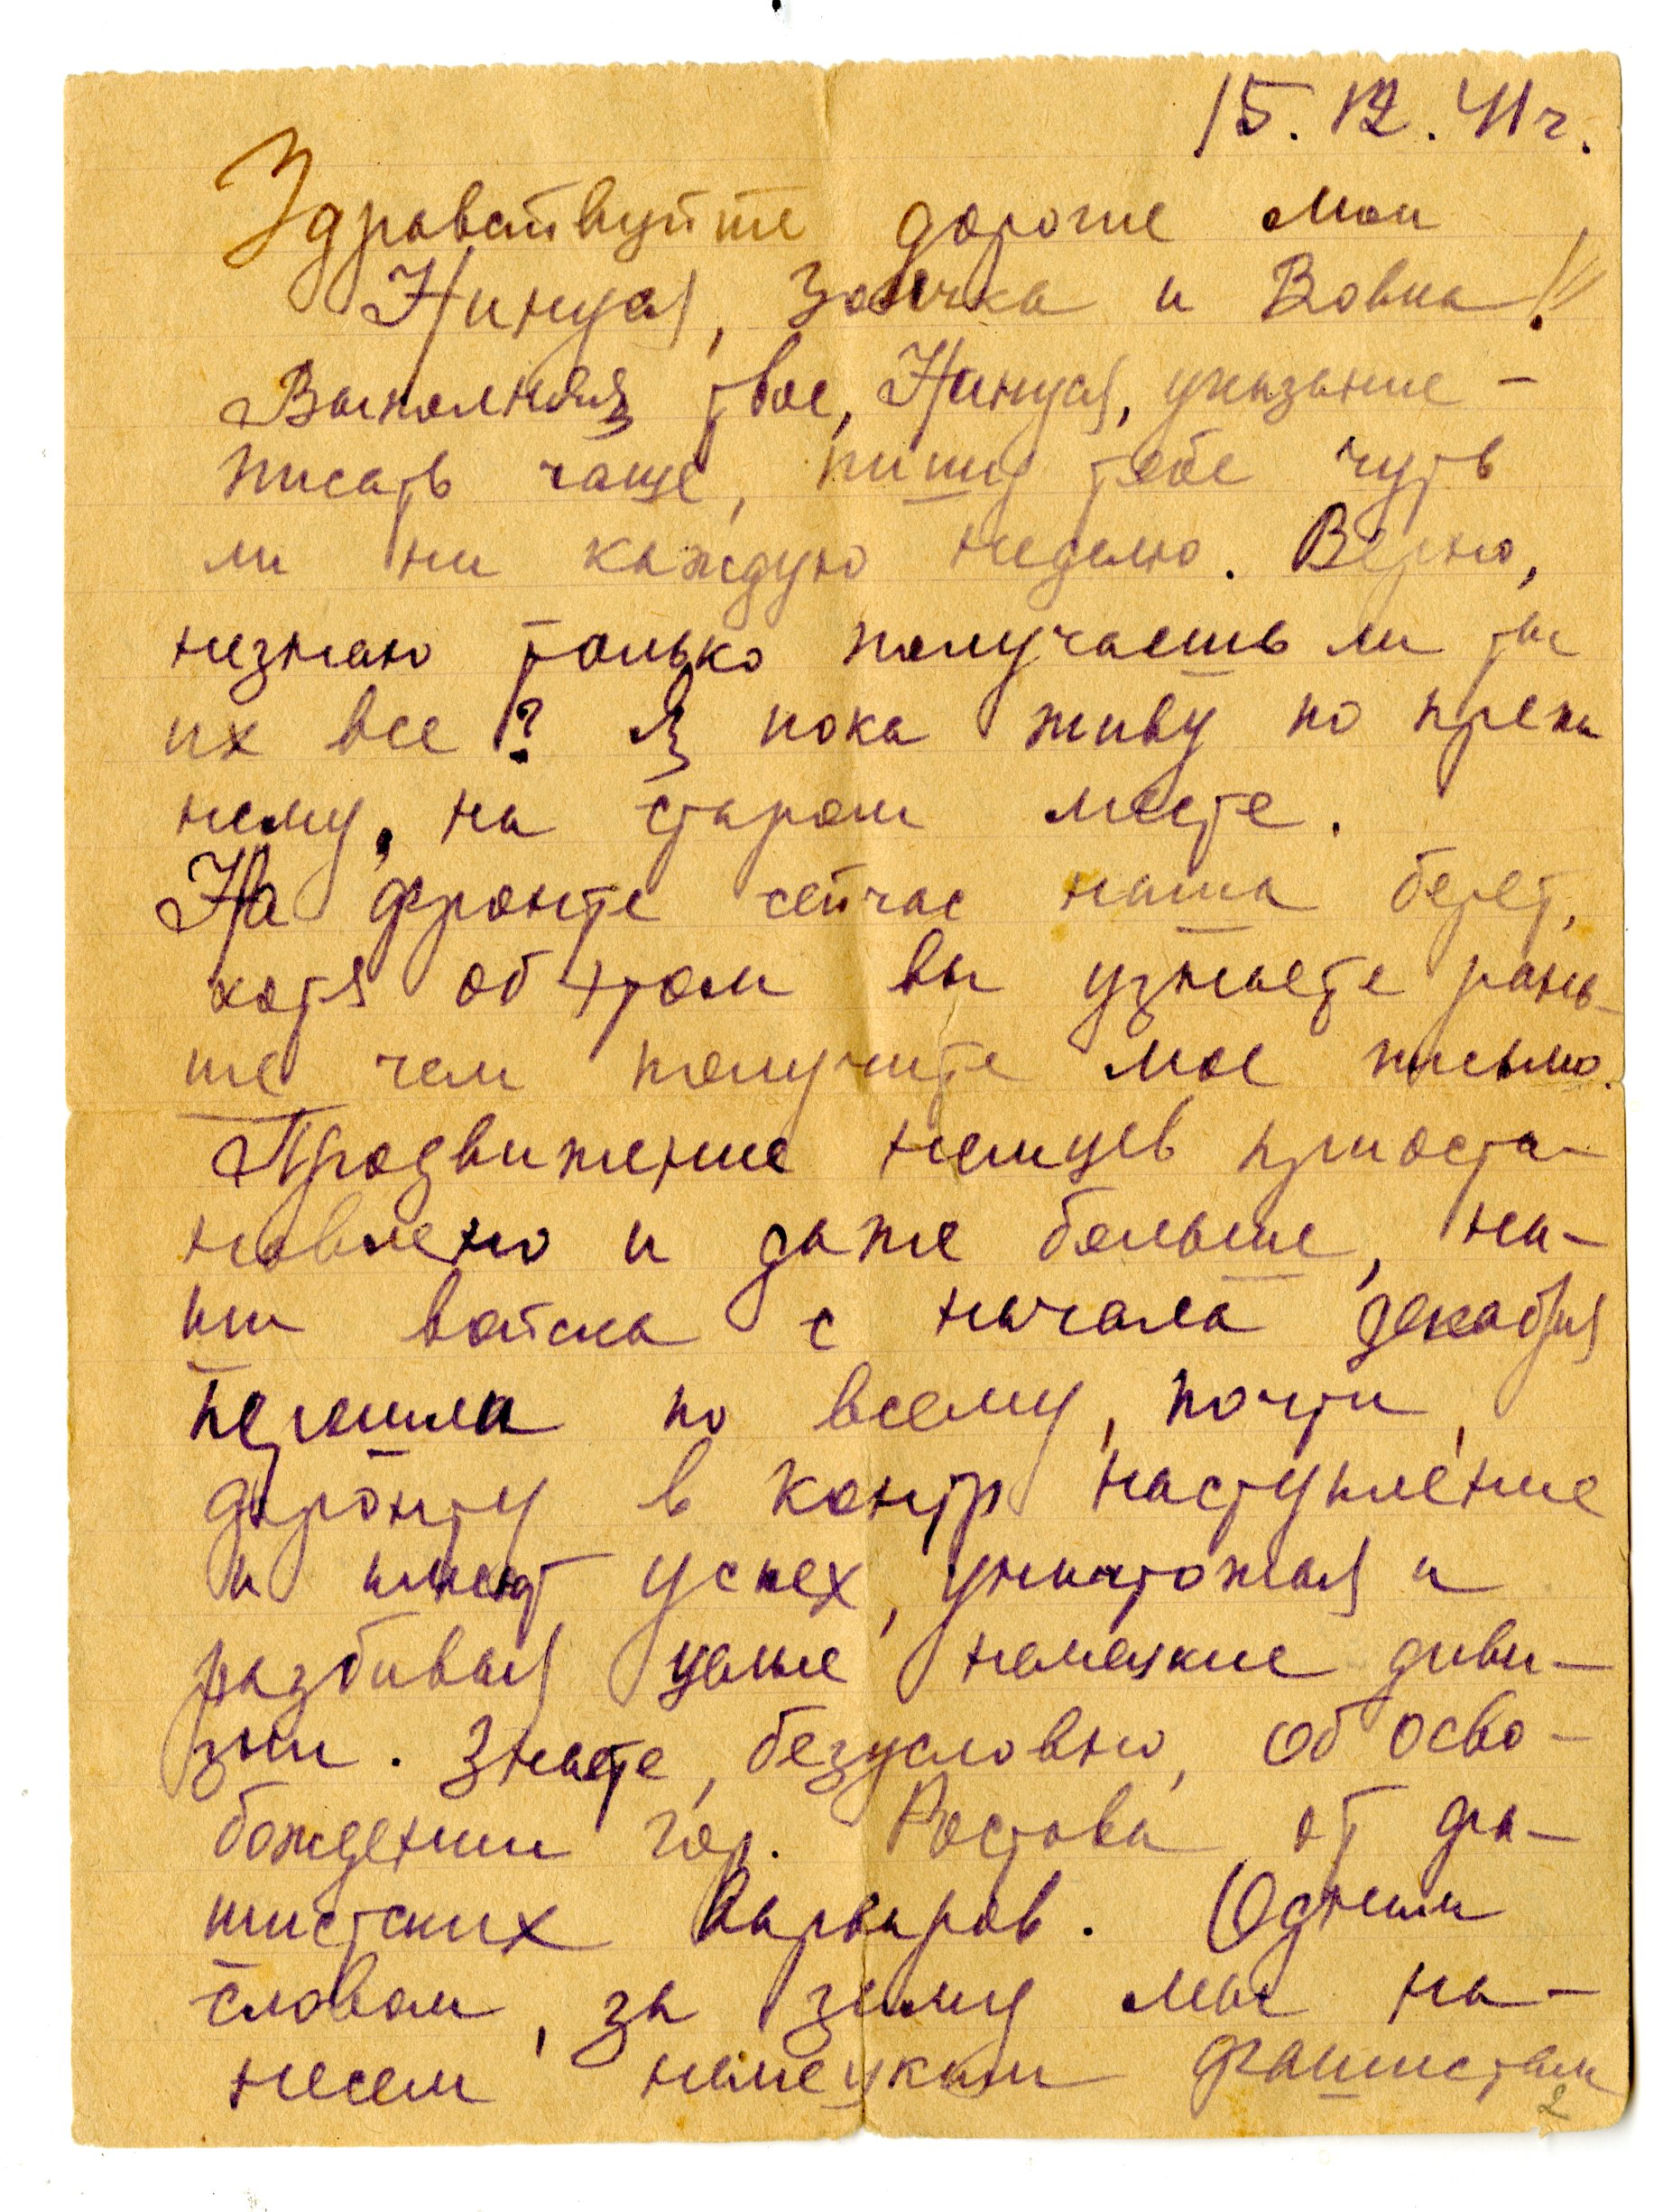 15.12.41г.
Здравствуйте дорогие мои
Нинуся, Зоичка и Вовка!!
Выполняя твое, Нинуся, указание –
писать чаще, пишу тебе чуть
ли ни каждую неделю. Верно,
незнаю только получаешь ли ты
их все? Я пока живу по преж
нему, на старом месте.
На фронте сейчас наша берет,
хотя об этом вы узнаете рань-
ше чем получите мое письмо.
Продвижение немцев приоста-
новлено и даже больше, на-
ши войска с начала декабря
перешли по всему, почти,
фронту в контр наступление
и имеют успех, уничтожая и
разбивая целые немецкие диви-
зии. Знаете, безусловно, об осво-
бождении гор. Ростова от фа-
шистских варваров. Одним
словом, за зиму мы на-
несем немецким фашистам
2